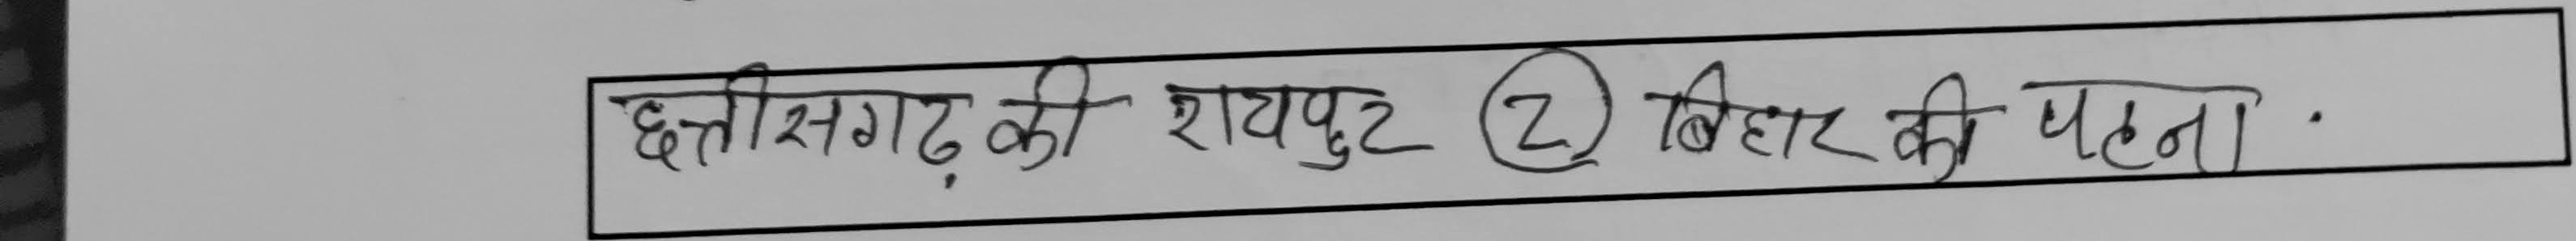 छत्तीसगढ़ की रायपुर ② बिहार की पटना .